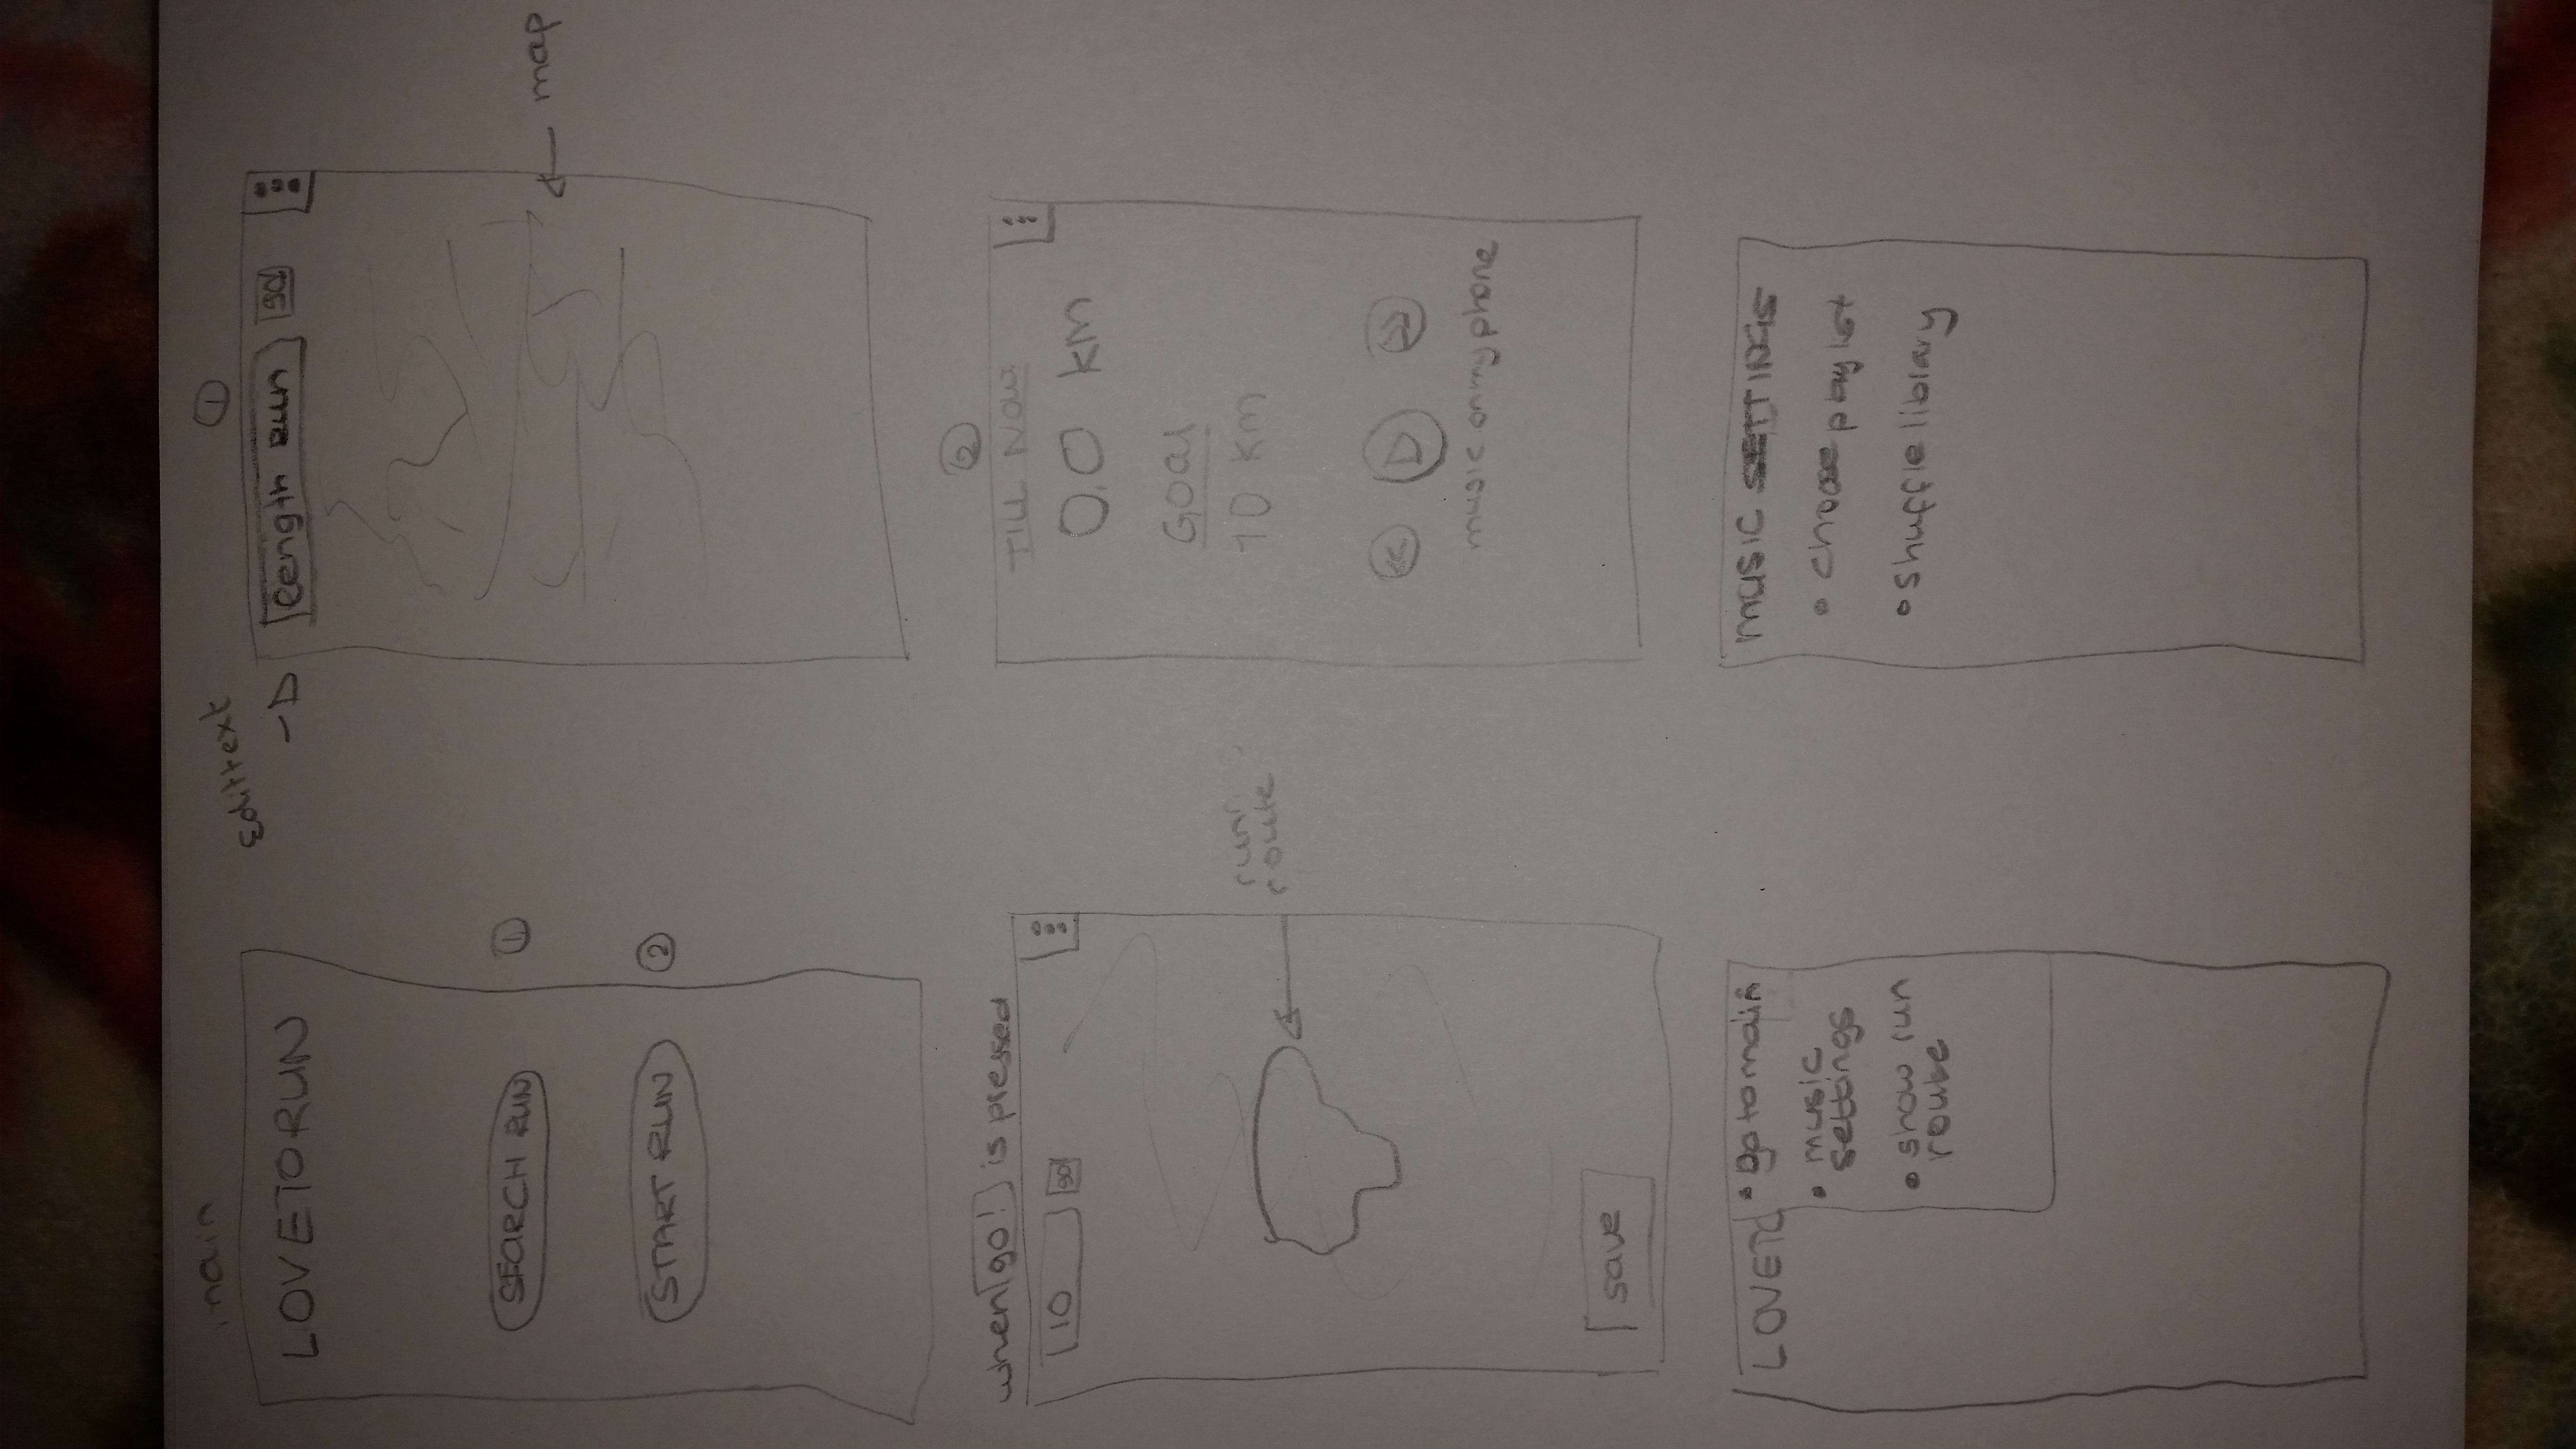 main
LOVETORUN
SEARCH RUN
①
START RUN
②
Edittext
①
length Run
go!
map
when go! is pressed
10
go!
run
route
save
②
TILL NOW
0.0 km
Goal
10 km
music on my phone
LOVETO
• go to main
• music
settings
• show run
route
MUSIC SETTINGS
• choose playlist
• shuffle library